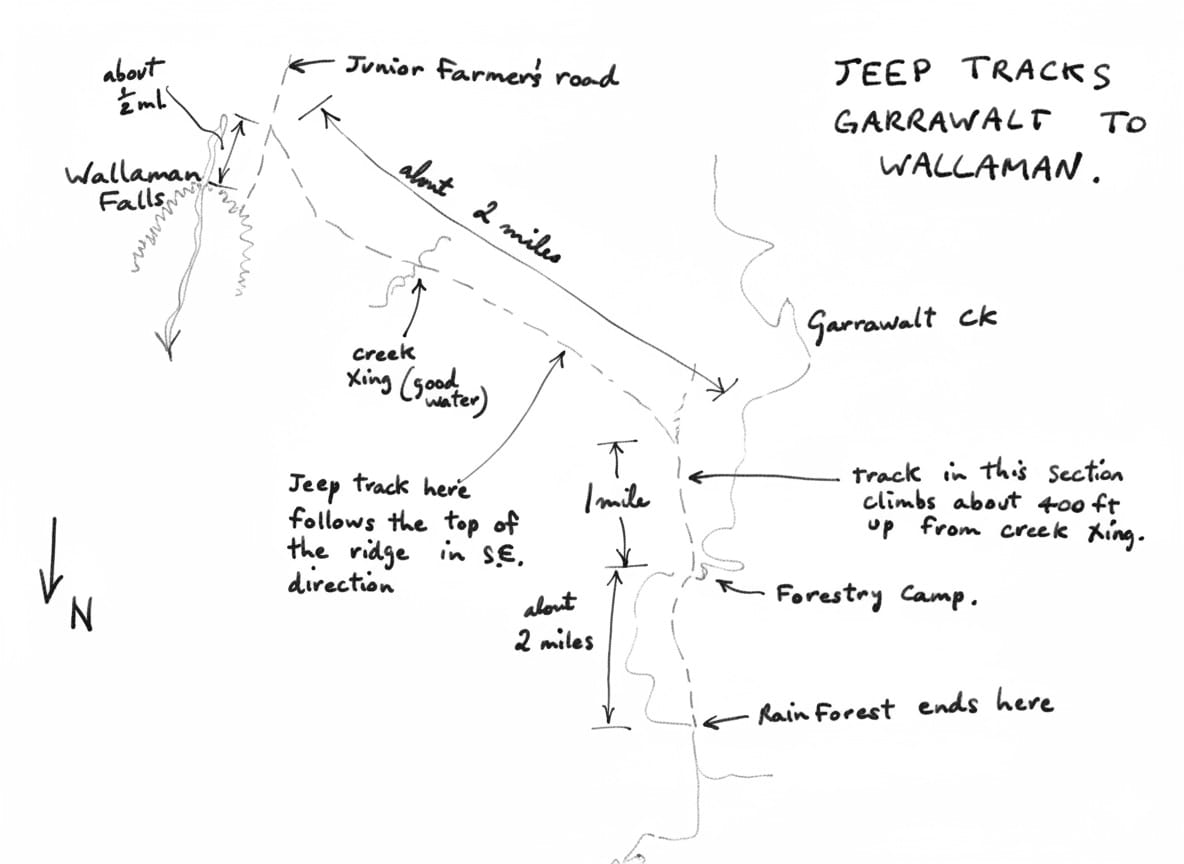 JEEP TRACKS
GARRAWALT TO
WALLAMAN.
about
1/2 ml.
Junior Farmer's road
Wallaman
Falls
about 2 miles
Garrawalt Ck
creek
Xing (good
water)
Jeep track here
follows the top of
the ridge in S.E.
direction
1 mile
track in this section
climbs about 400 ft
up from creek Xing.
N
about
2 miles
Forestry Camp.
Rain Forest ends here